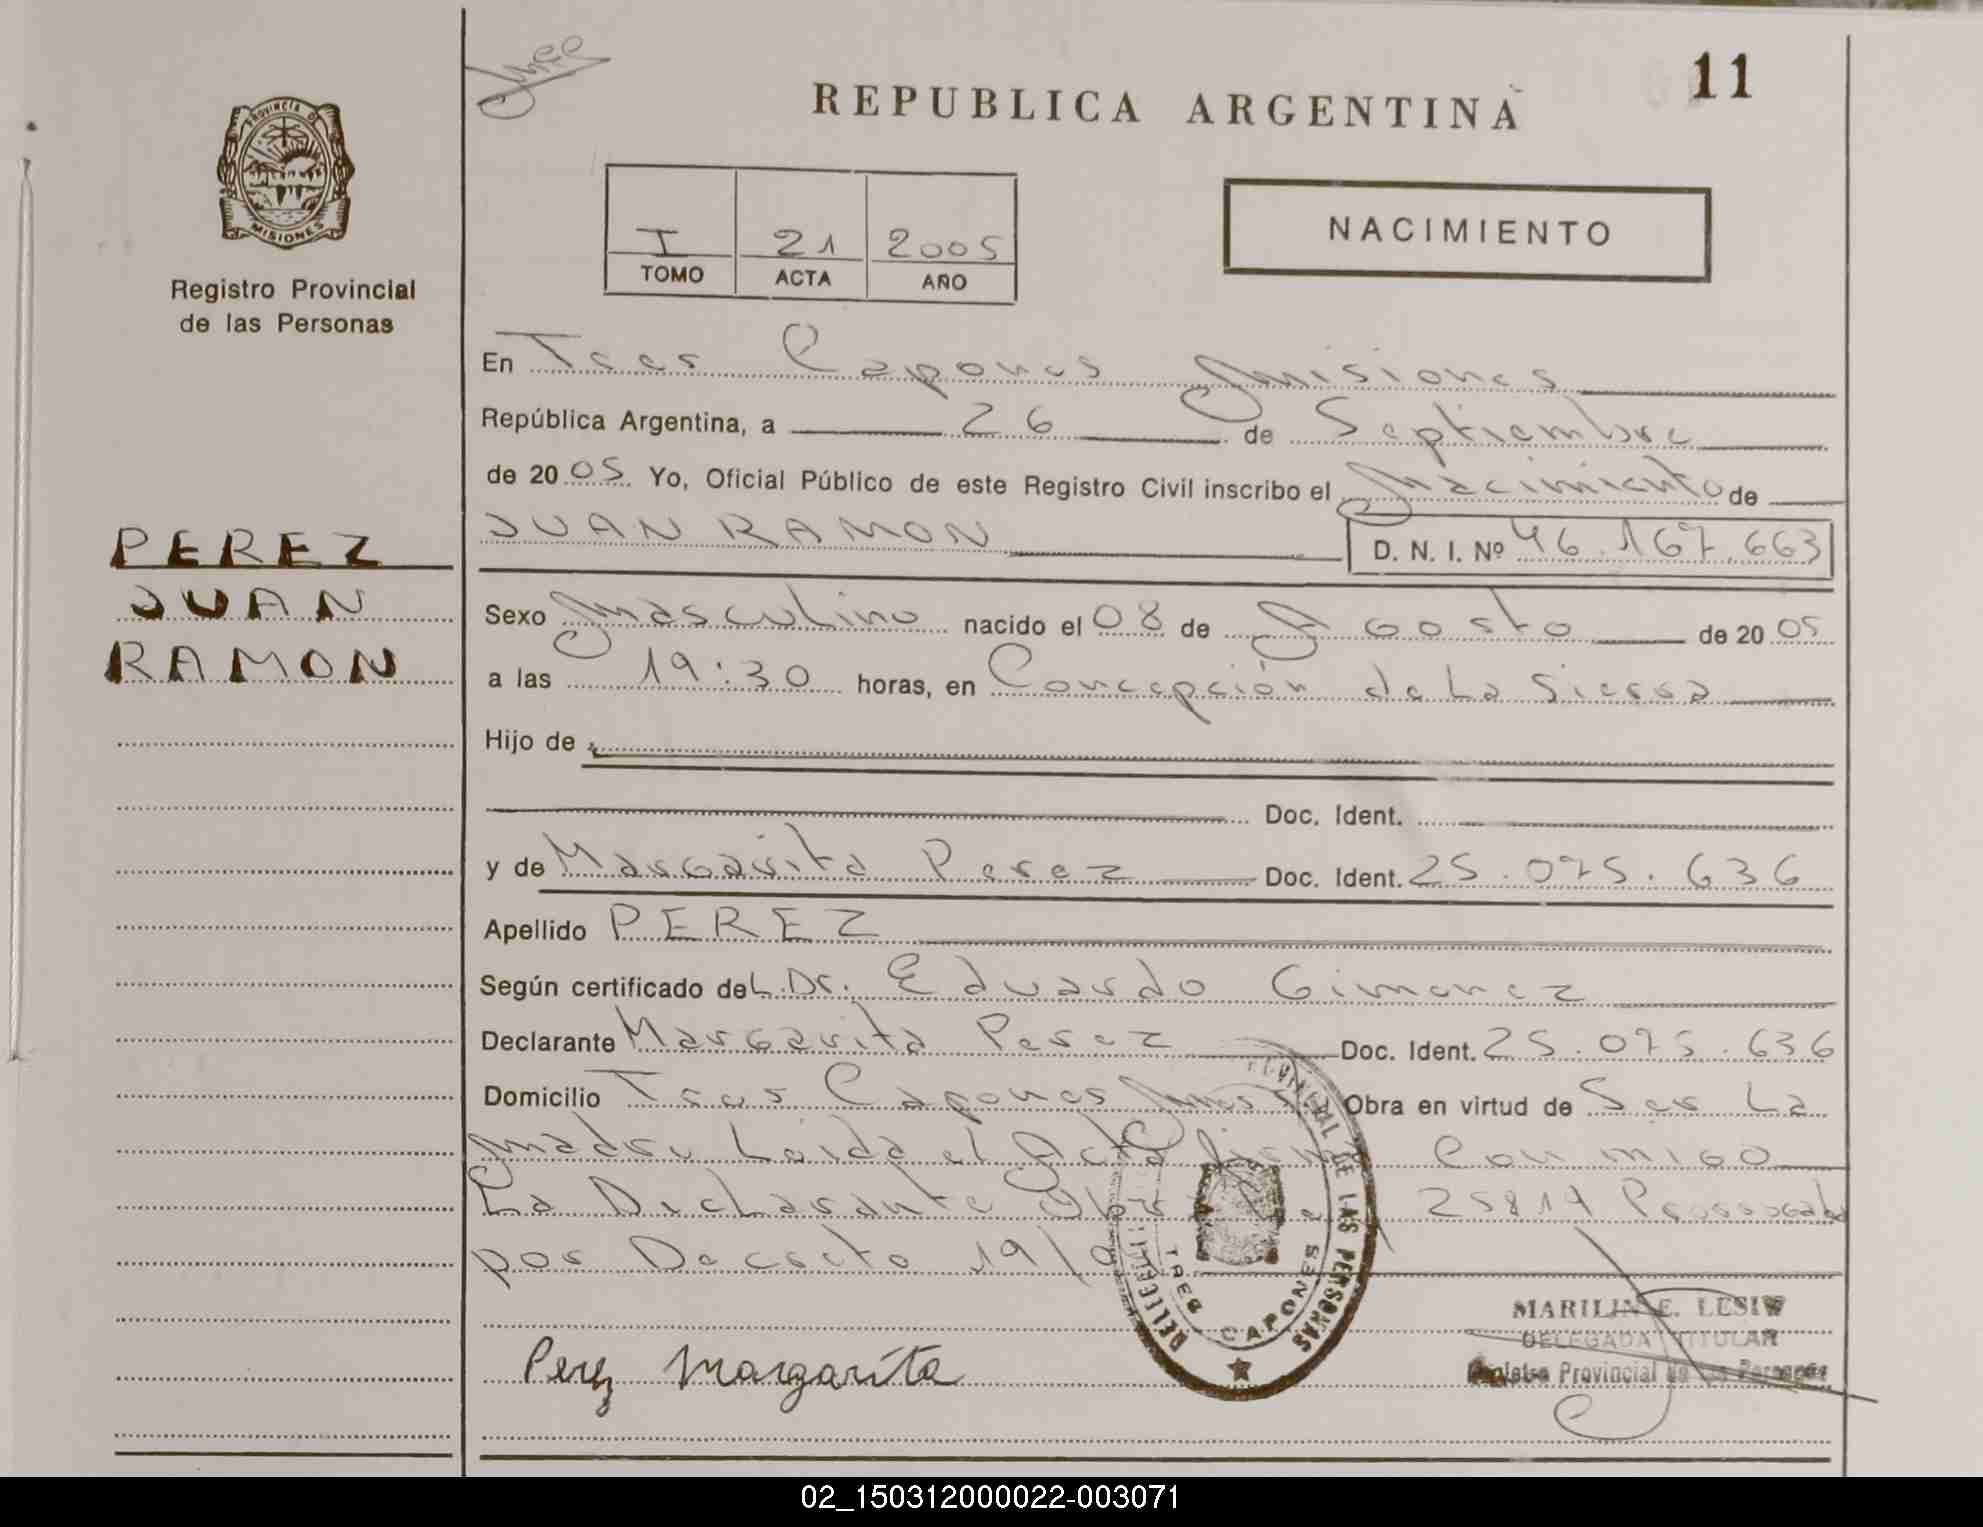 11
REPUBLICA ARGENTINA
PROVINCIA DE
MISIONES
Registro Provincial
de las Personas
I 21 2005
TOMO ACTA AÑO
NACIMIENTO
En Tres Capones Misiones
República Argentina, a 26 de Septiembre
de 2005. Yo, Oficial Público de este Registro Civil inscribo el Nacimiento de
JUAN RAMON D. N. I. Nº 46.167.663
PEREZ
JUAN
RAMON
Sexo Masculino nacido el 08 de Agosto de 2005
a las 19:30 horas, en Concepción de La Sierra
Hijo de
Doc. Ident.
y de Margarita Perez Doc. Ident. 25.075.636
Apellido PEREZ
Según certificado del Dr. Eduardo Gimenez
Declarante Margarita Perez Doc. Ident. 25.075.636
Domicilio Tres Capones Obra en virtud de Ser La
madre Leida el Acta Conmigo
La Declarante 25819 Prorrogada
por Decreto 19/0
Perez Margarita
DE LAS PERSONAS
TRES CAPONES
MARILIN E. LESIW
DELEGADA TITULAR
Registro Provincial de las Personas
02_150312000022-003071